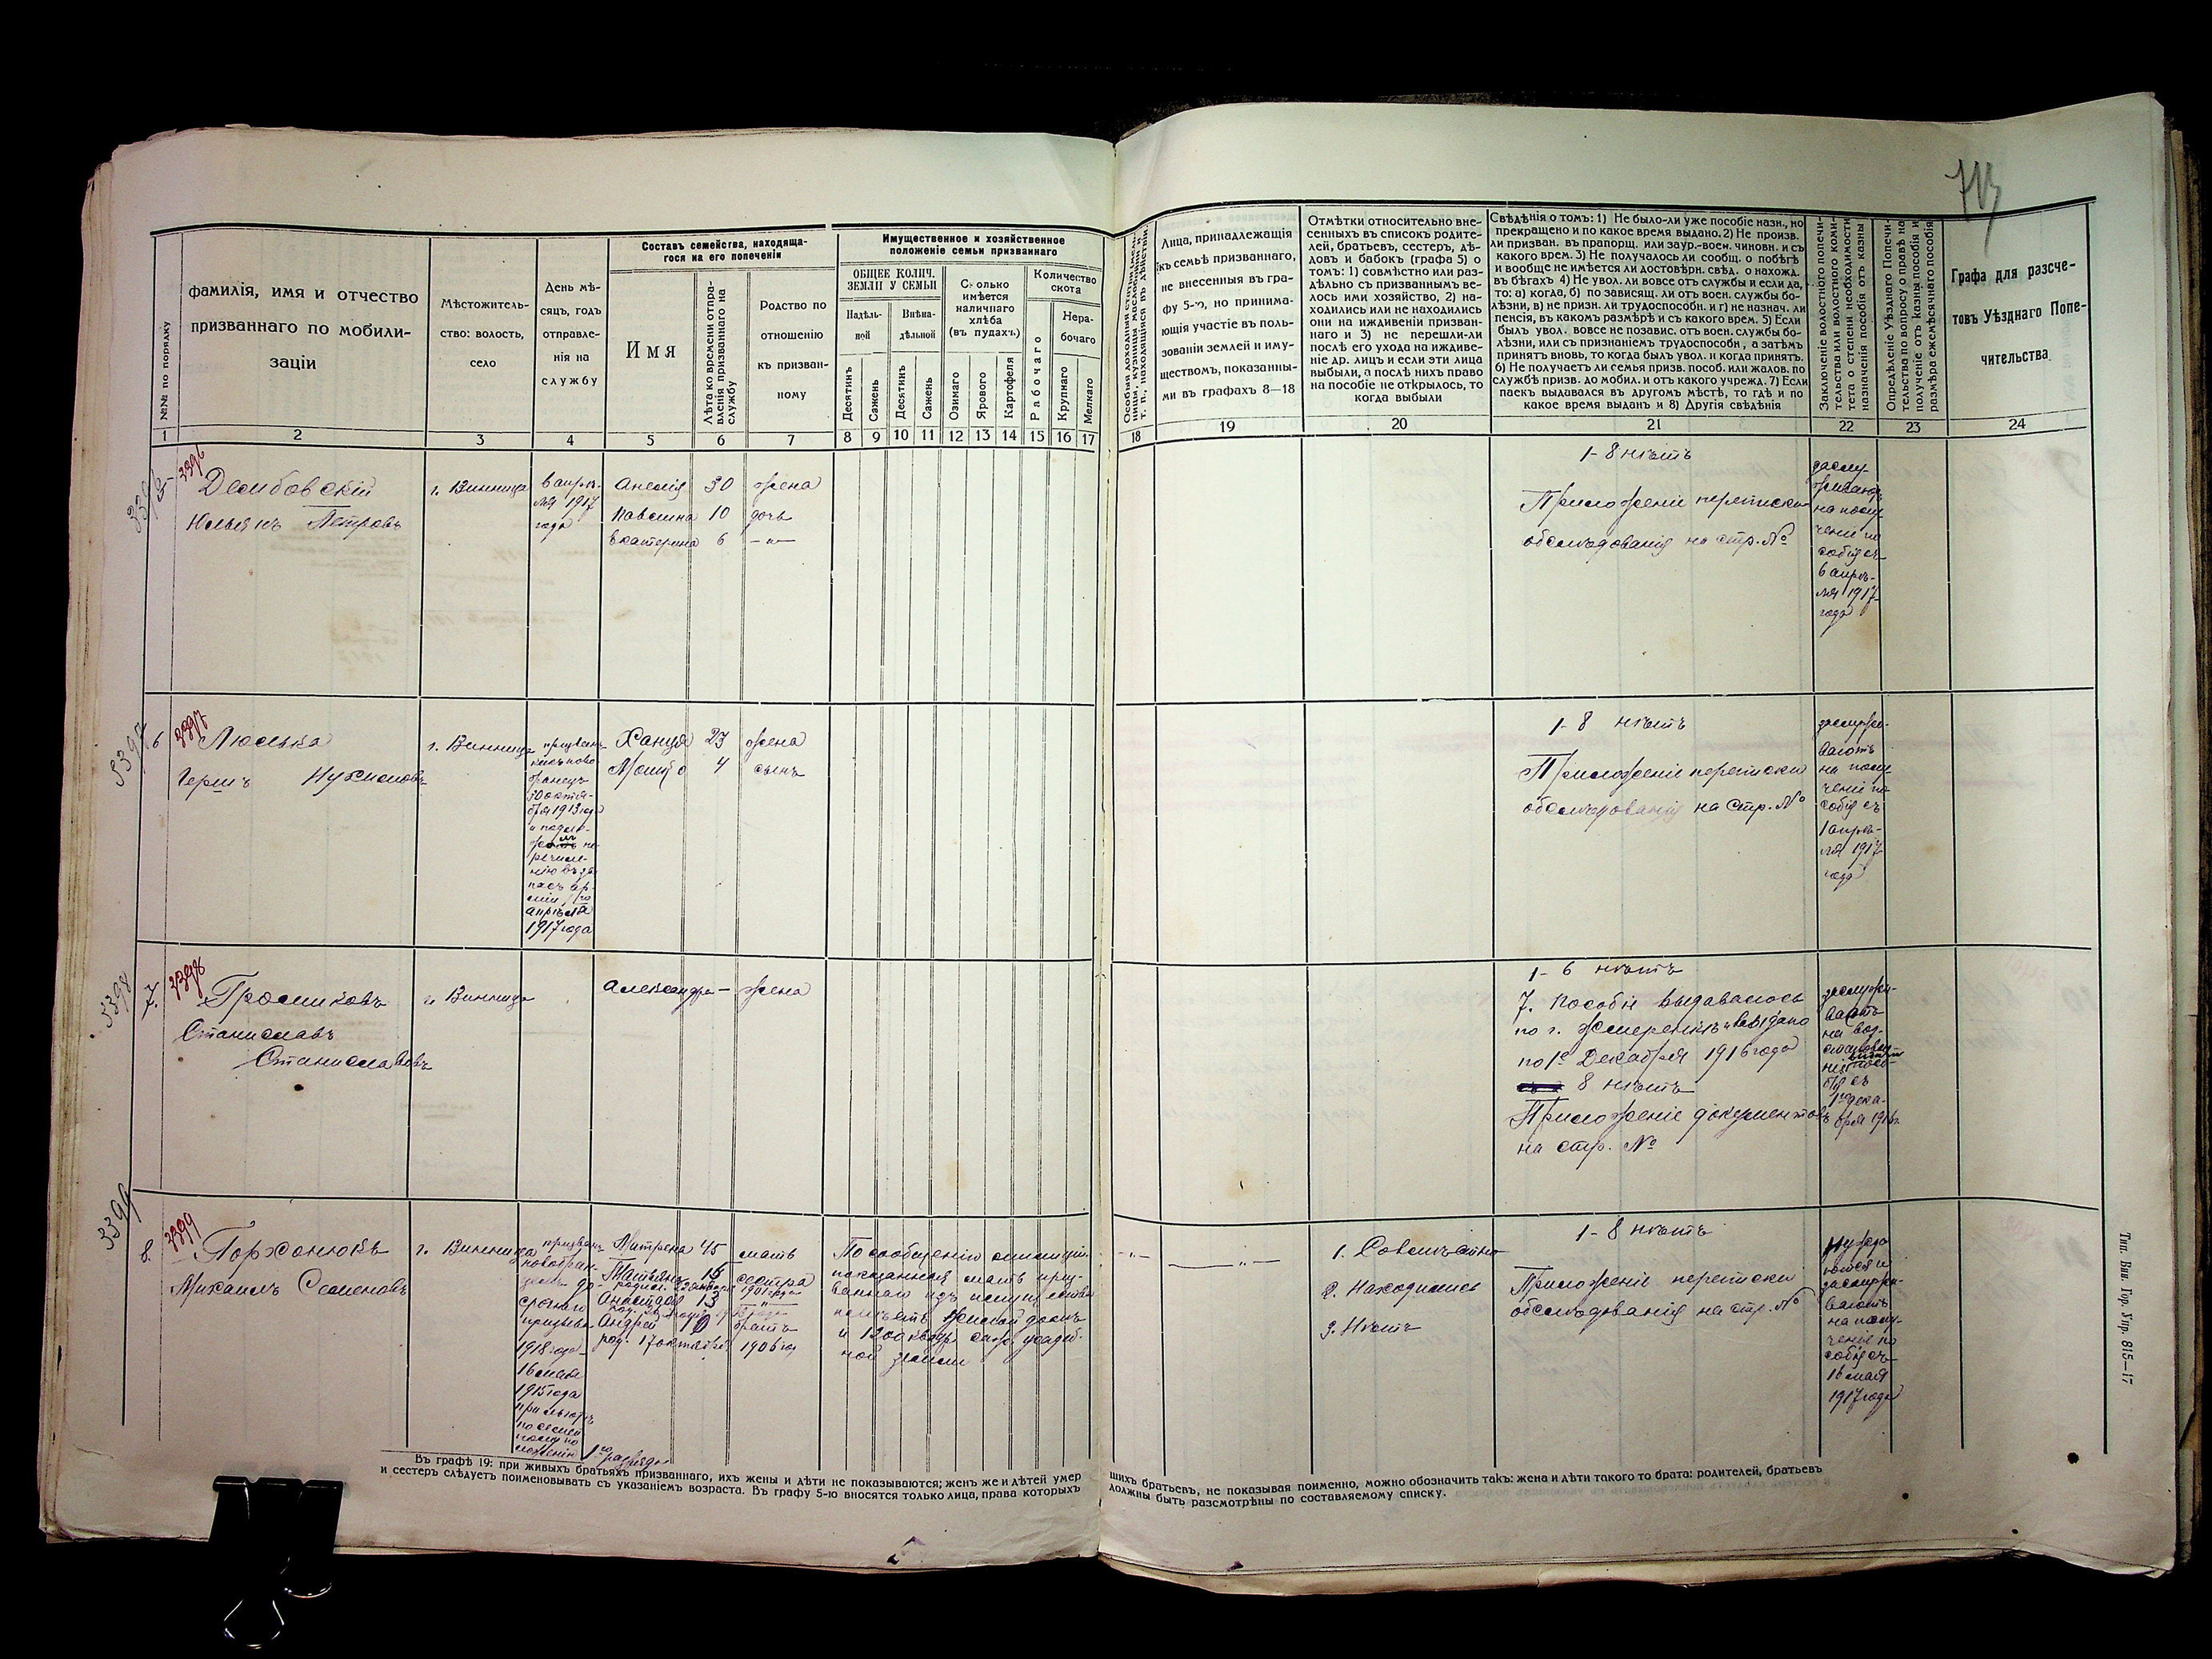 713
№№ по порядку
фамилія, имя и отчество
призваннаго по мобили-
заціи
Мѣстожитель-
ство: волость,
село
День мѣ-
сяцъ, годъ
отправле-
нія на
службу
Составъ семейства, находяща-
гося на его попеченіи
Имя
Лѣта ко времени отпра-
вленія призваннаго на
службу
Родство по
отношенію
къ призван-
ному
Имущественное и хозяйственное
положеніе семьи призваннаго
ОБЩЕЕ КОЛИЧ.
ЗЕМЛИ У СЕМЬИ
Надѣль-
ной
Внѣна-
дѣльной
Десятинъ
Сажень
Десятинъ
Сажень
Сколько
имѣется
наличнаго
хлѣба
(въ пудахъ)
Озимаго
Ярового
Картофеля
Количество
скота
Рабочаго
Нера-
бочаго
Крупнаго
Мелкаго
Лица, принадлежащія
къ семьѣ призваннаго,
не внесенныя въ гра-
фу 5-ю, но принима-
ющія участіе въ поль-
зованіи землей и иму-
ществомъ, показанны-
ми въ графахъ 8—18
Отмѣтки относительно вне-
сенныхъ въ списокъ родите-
лей, братьевъ, сестеръ, дѣ-
довъ и бабокъ (графа 5) о
томъ: 1) совмѣстно или раз-
дѣльно съ призваннымъ ве-
лось ими хозяйство, 2) на-
ходились или не находились
они на иждивеніи призван-
наго и 3) не перешли-ли
послѣ его ухода на иждиве-
ніе др. лицъ и если эти лица
выбыли, а послѣ нихъ право
на пособіе не открылось, то
когда выбыли
Свѣдѣнія о томъ: 1) Не было-ли уже пособіе назн., но
прекращено и по какое время выдано. 2) Не произв.
ли призван. въ прапорщ. или заур.-воен. чиновн. и съ
какого врем. 3) Не получалось ли сообщ. о побѣгѣ
и вообще не имѣется ли достовѣрн. свѣд. о нахожд.
въ бѣгахъ 4) Не увол. ли вовсе отъ службы и если да,
то: а) когда, б) по зависящ. ли отъ воен. службы бо-
лѣзни, в) не призн. ли трудоспособн. и г) не назнач. ли
пенсія, въ какомъ размѣрѣ и съ какого врем. 5) Если
былъ увол. вовсе не позавис. отъ воен. службы бо-
лѣзни, или съ признаніемъ трудоспособн, а затѣмъ
принятъ вновь, то когда былъ увол. и когда принятъ.
6) Не получаетъ ли семья призв. пособ. или жалов. по
службѣ призв. до мобил. и отъ какого учрежд. 7) Если
паекъ выдавался въ другомъ мѣстѣ, то гдѣ и по
какое время выданъ и 8) Другія свѣдѣнія
Заключеніе волостного попечи-
тельства или волостного коми-
тета о степени необходимости
назначенія пособія отъ казны
Опредѣленіе Уѣзднаго Попечи-
тельства по вопросу о правѣ на
полученіе отъ казны пособія и
размѣра ежемѣсячнаго пособія
Графа для разсче-
товъ Уѣзднаго Попе-
чительства
1 2 3 4 5 6 7 8 9 10 11 12 13 14 15 16 17 18 19 20 21 22 23 24
3396
5
Юльянъ Петровъ
г. Винница
6 апрѣ-
ля 1917
года
Анелія 30 жена
Павлина 10 дочь
Екатерина 6 —"—
1-8 нѣтъ
Приложеніе переписки
обслѣдованія на стр. №
заслу-
живаютъ
на полу-
ченіе по
собія съ
6 апрѣ-
ля 1917
года
3397
6 3397
Люлька
Гершъ Нухимовъ
г. Винница
призванъ
30 октя-
бря 1913 года
апрѣля
1917 года
Ханця 23 жена
Мошко 4 сынъ
1-8 нѣтъ
Приложеніе переписки
обслѣдованія на стр. №
заслужи-
ваютъ
на полу-
ченіе по
собія съ
1 апрѣ-
ля 1917
года
3398
7. 3398
Станиславъ
Станиславовъ
г. Винница
Александра — жена
1-6 нѣтъ
7. Пособіе выдавалось
по г. Жмеринкѣ и выдано
по 1е Декабря 1916 года
8 нѣтъ
Приложеніе документовъ
на стр. №
заслужи-
ваетъ
на воз-
1го дека-
бря 1916 г.
3399
8. 3399
Михаилъ Семеновъ
г. Винница
призванъ
новобран-
цемъ до-
срочнаго
призыва
1918 года
16 мая
1915 года
1го разряда
Митрена 45 мать
Татьяна 16 сестра
Анастасія 13 "
Андрей 10 братъ
род. 17 октября 1906 год
По сообщенію милиціи
1. Совмѣстно
2. Находились
3. Нѣтъ
1-8 нѣтъ
Приложеніе переписки
обслѣдованія на стр. №
заслужи-
ваютъ
на полу-
ченіе по
собія съ
16 мая
1917 года
Въ графѣ 19: при живыхъ братьяхъ призваннаго, ихъ жены и дѣти не показываются; женъ же и дѣтей умер
шихъ братьевъ, не показывая поименно, можно обозначить такъ: жена и дѣти такого то брата: родителей, братьевъ
и сестеръ слѣдуетъ поименовывать съ указаніемъ возраста. Въ графу 5-ю вносятся только лица, права которыхъ
должны быть разсмотрѣны по составляемому списку.
Тип. Вин. Гор. Упр. 815—17